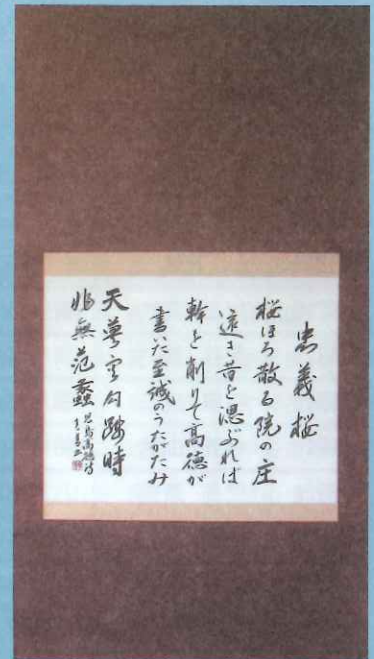 忠義桜
桜ほろ散る院の庄
遠き昔を偲ぶれば
幹を削りて高徳が
書いた至誠のうたがたみ
天莫空勾踐時
非無范蠡
児島高徳詩